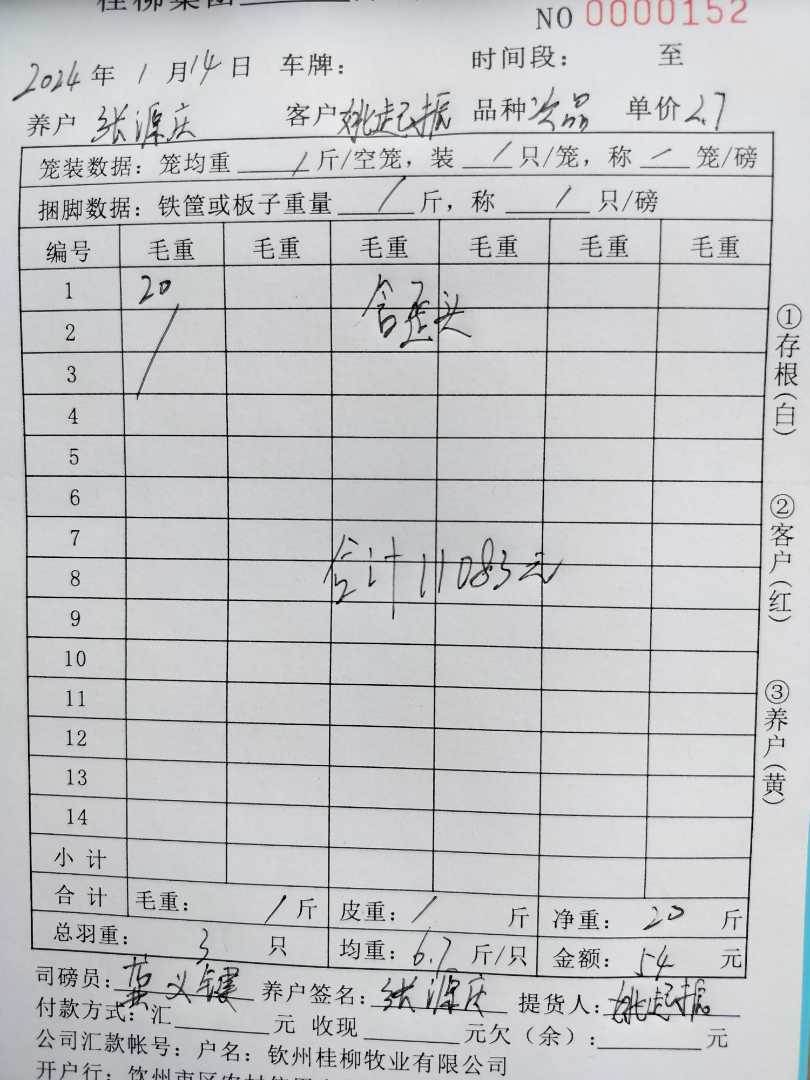 桂柳集团
NO 0000152
2024 年 1 月 14 日 车牌: 时间段: 至
养户 张源庆 客户 姚起振 品种 次品 单价 2.7
笼装数据: 笼均重 / 斤/空笼, 装 / 只/笼, 称 / 笼/磅
捆脚数据: 铁筐或板子重量 / 斤, 称 / 只/磅
编号 毛重 毛重 毛重 毛重 毛重 毛重
1 20
含歪头
2
3
4
5
6
7
合计 11083元
8
9
10
11
12
13
14
小计
合计 毛重: / 斤 皮重: / 斤 净重: 20 斤
总羽重: 3 只 均重: 6.7 斤/只 金额: 54 元
司磅员: 义键 养户签名: 张源庆 提货人: 姚起振
付款方式: 汇 元 收现 元欠(余): 元
公司汇款帐号: 户名: 钦州桂柳牧业有限公司
开户行: 钦州市区农村信用
①存根(白)
②客户(红)
③养户(黄)